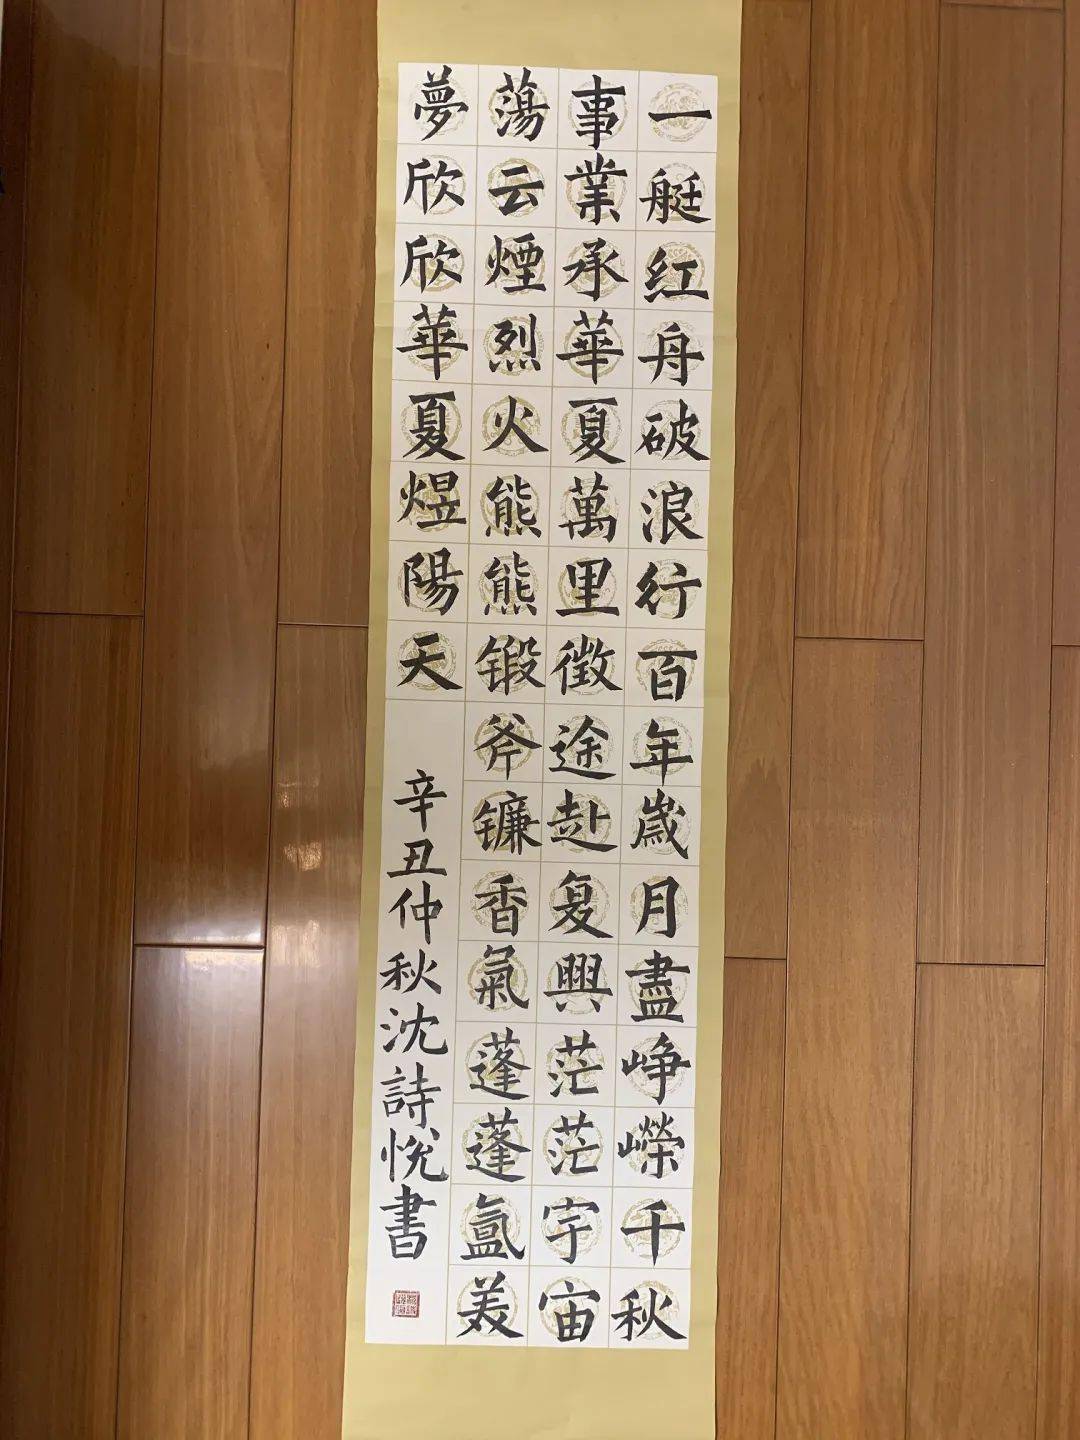 一艇红舟破浪行百年歲月盡峥嶸千秋
事業承華夏萬里徵途赴复興茫茫宇宙
蕩云煙烈火熊熊锻斧镰香氣蓬蓬氳美
夢欣欣華夏煜陽天
辛丑仲秋沈詩悅書